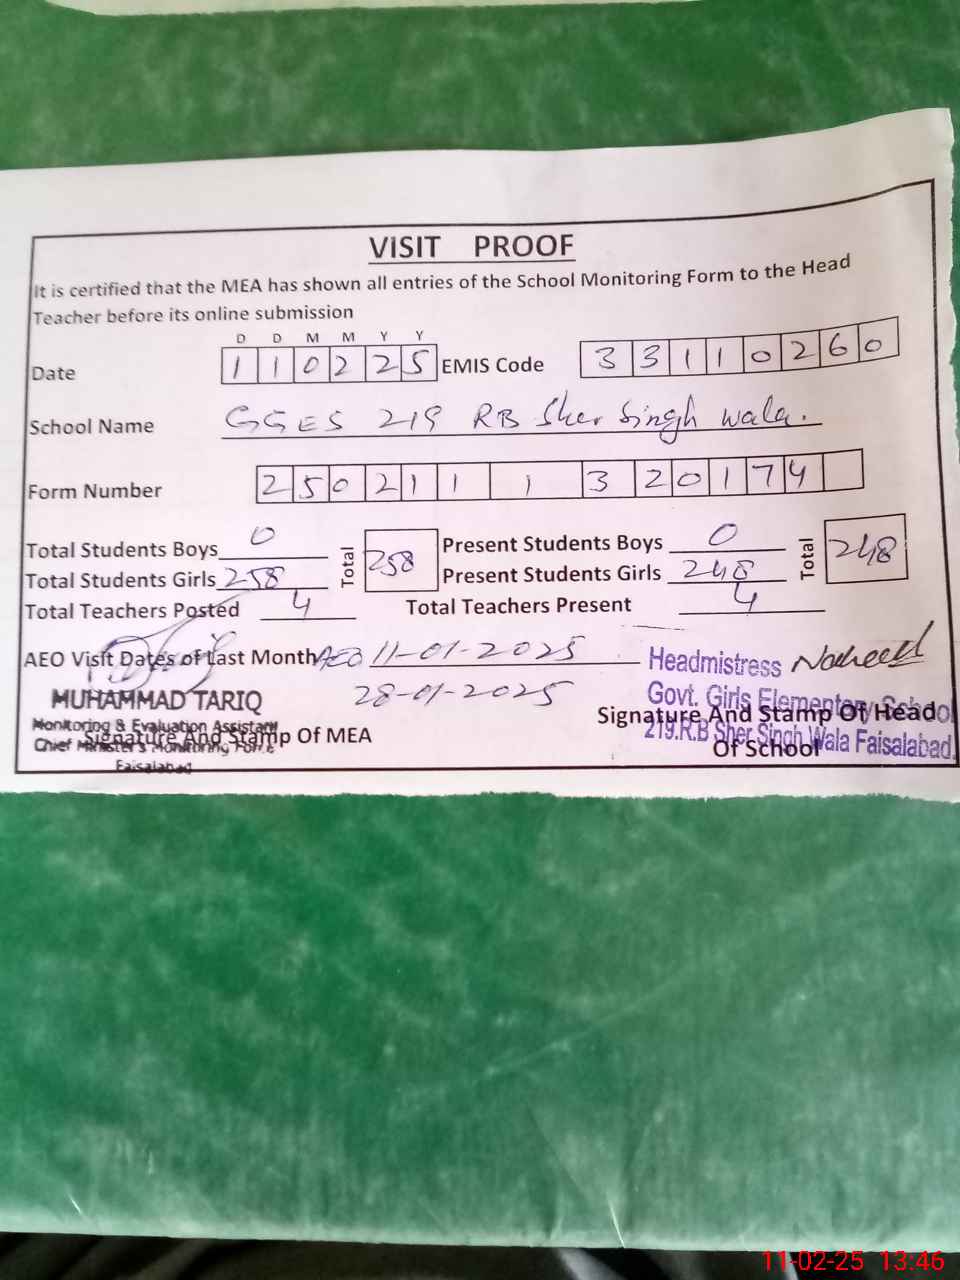 VISIT PROOF
It is certified that the MEA has shown all entries of the School Monitoring Form to the Head
Teacher before its online submission
D D M M Y Y
Date 1 1 0 2 2 5 EMIS Code 3 3 1 1 0 2 6 0
School Name GGES 219 RB Sher Singh wala.
Form Number 2 5 0 2 1 1 1 3 2 0 1 7 4
Total Students Boys 0 Total 258 Present Students Boys 0 Total 248
Total Students Girls 258 Present Students Girls 248
Total Teachers Posted 4 Total Teachers Present 4
AEO Visit Dates of Last Month AEO 11-01-2025
28-01-2025
MUHAMMAD TARIQ
Monitoring & Evaluation Assistant
Chief Minister's Monitoring Force
Faisalabad
Signature And Stamp Of MEA
Headmistress
Govt. Girls Elementary School
219.R.B Sher Singh Wala Faisalabad.
Signature And Stamp Of Head
Of School
11-02-25 13:46